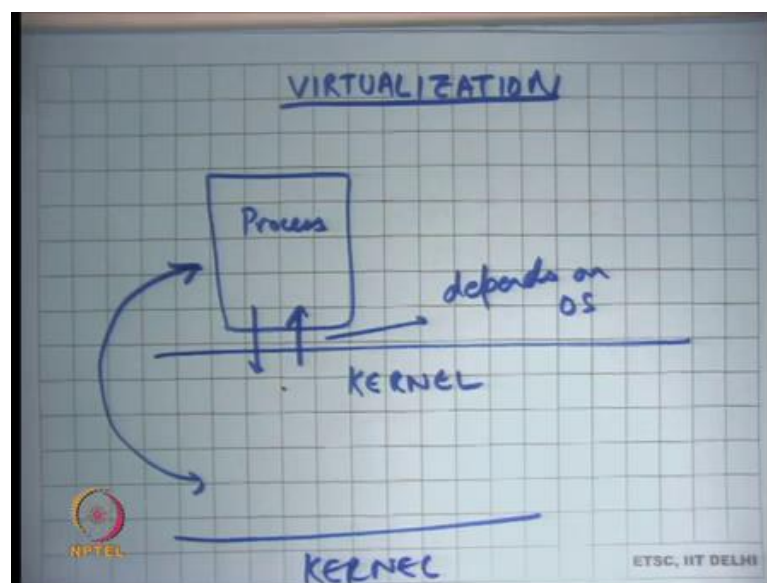 VIRTUALIZATION
Process
depends on
OS
KERNEL
KERNEL
NPTEL
ETSC, IIT DELHI